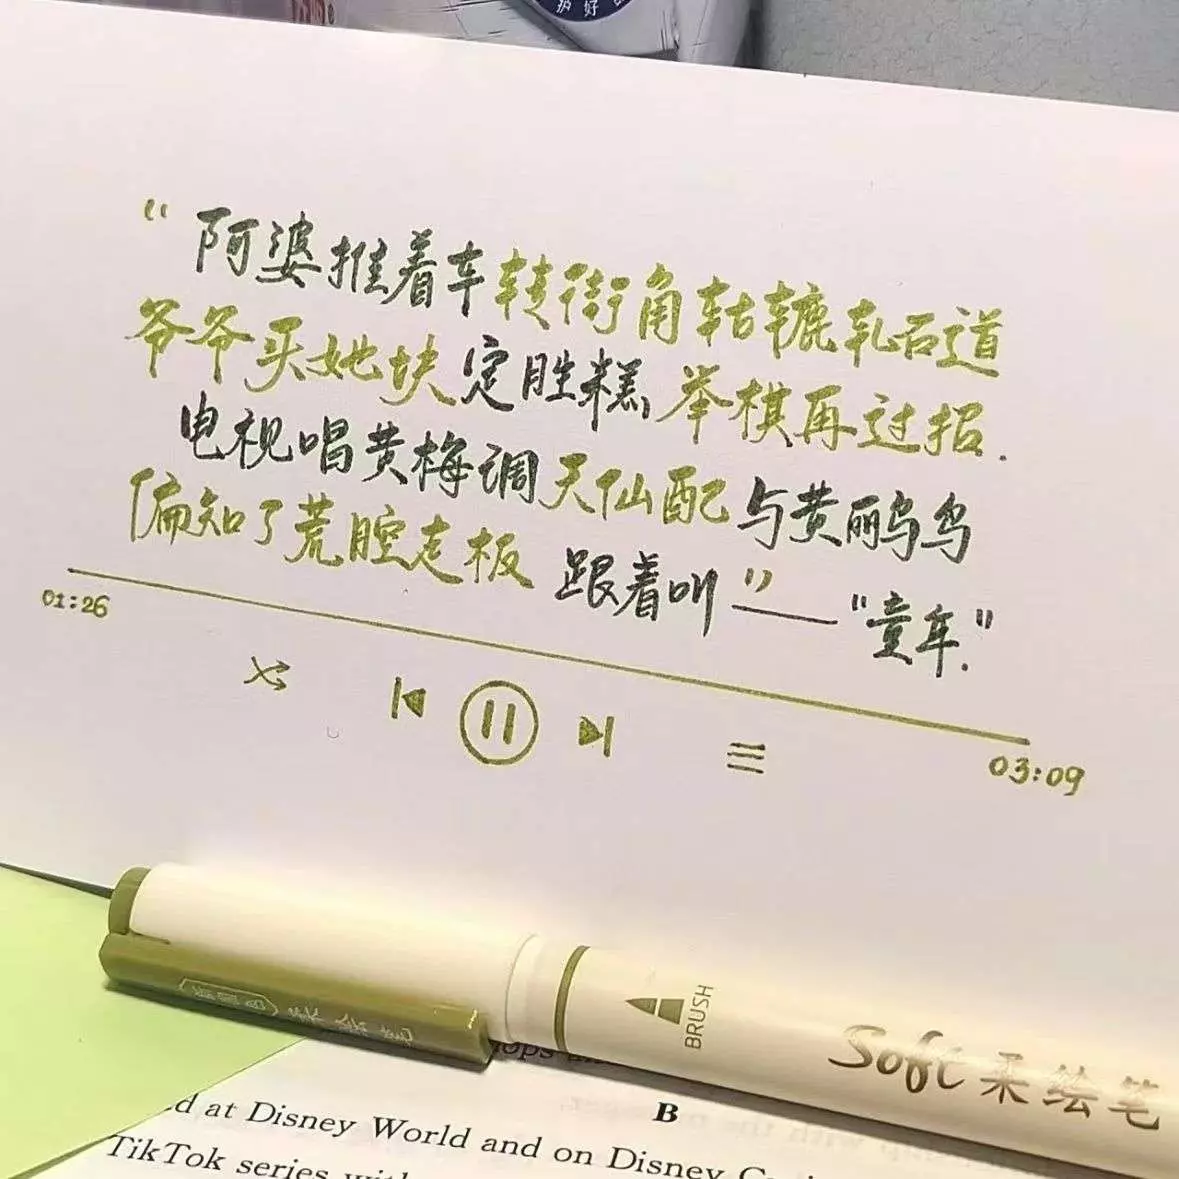 护好
“阿婆推着车转街角轱辘轧石道
爷爷买她块定胜糕举棋再过招.
电视唱黄梅调天仙配与黄鹂鸟鸟
偏知了荒腔走板 跟着叫”——“童年.”
01:26
03:09
柔绘笔
BRUSH
Soft 柔绘笔
B
d at Disney World and on Disney
TikTok series with